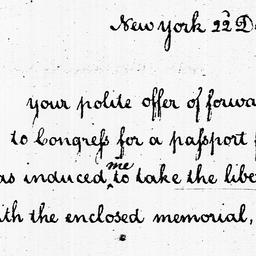 New York 22d D
your polite offer of forwa
to Congreſs for a paſsport f
as induced me to take the libe
ith the enclosed memorial,